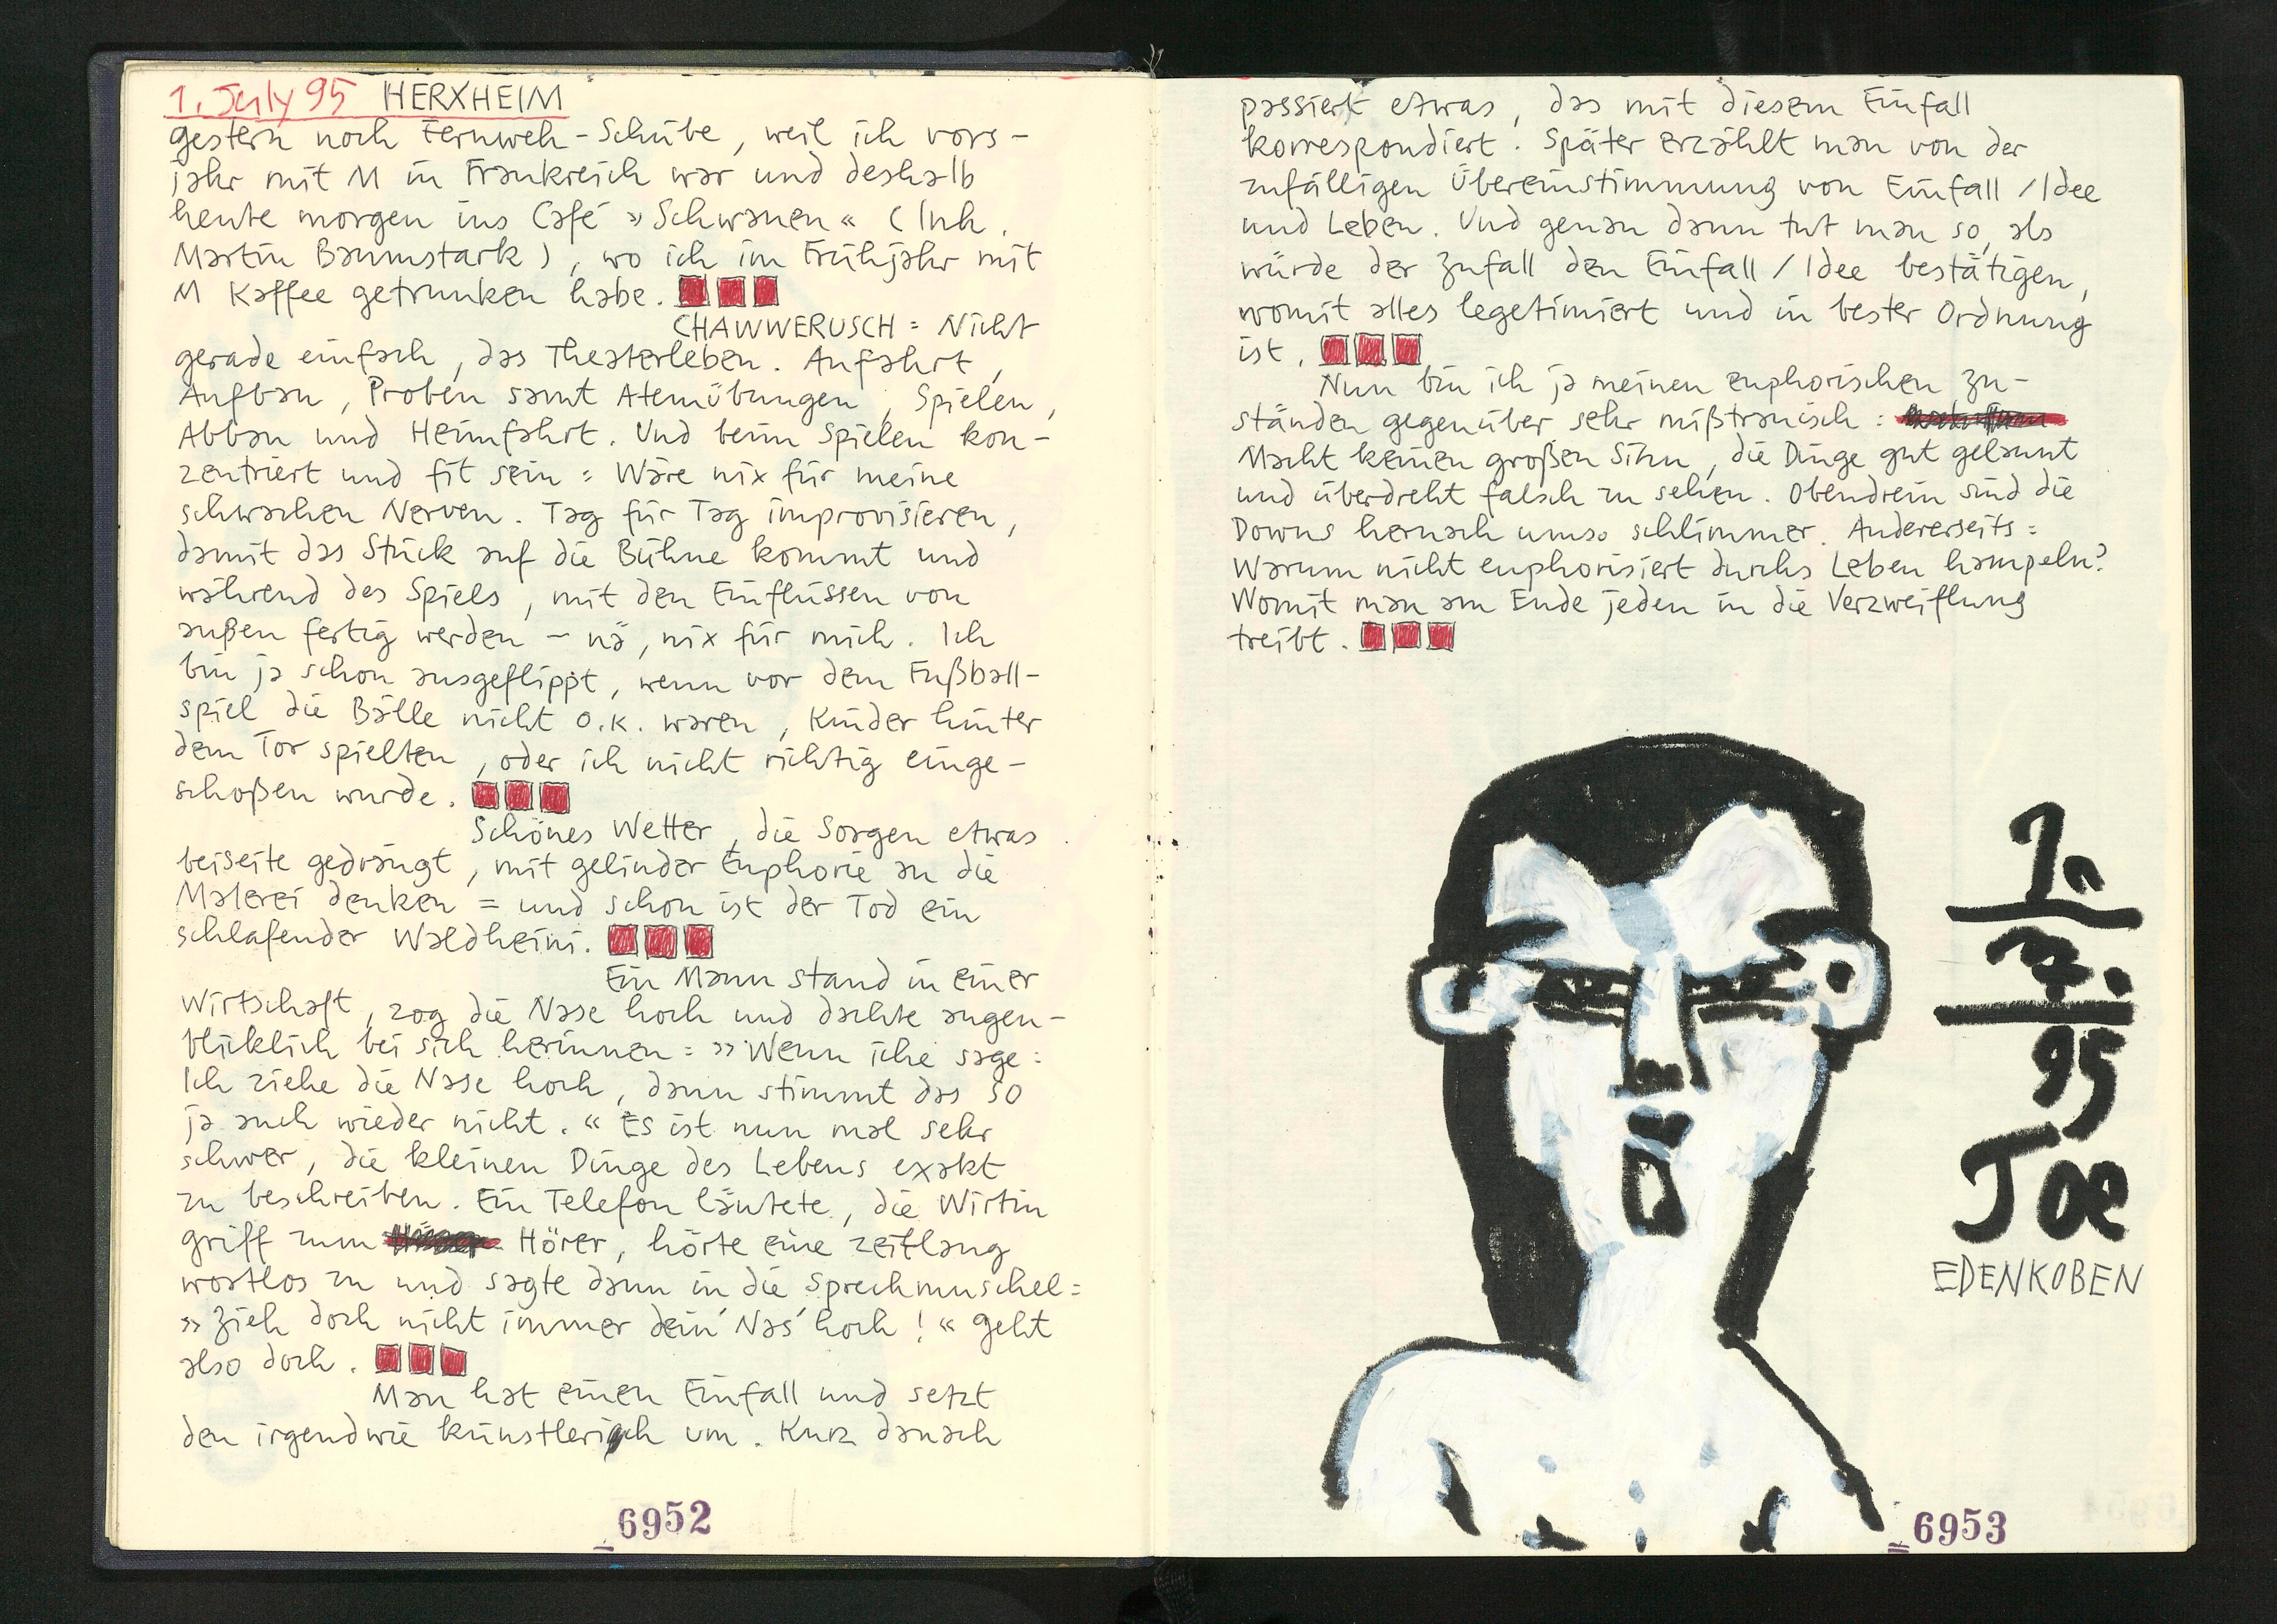 1. July 95 HERXHEIM
gestern noch Fernweh-Schübe, weil ich vors-
jahr mit M in Frankreich war und deshalb
heute morgen ins Café »Schwanen« (Inh.
Martin Baumstark), wo ich im Frühjahr mit
M Kaffee getrunken habe.
CHAWWERUSCH = Nicht
gerade einfach, das Theaterleben. Anfahrt,
Aufbau, Proben samt Atemübungen, Spielen,
Abbau und Heimfahrt. Und beim Spielen kon-
zentriert und fit sein = Wäre nix für meine
schwachen Nerven. Tag für Tag improvisieren,
damit das Stück auf die Bühne kommt und
während des Spiels, mit den Einflüssen von
außen fertig werden - nä, nix für mich. Ich
bin ja schon ausgeflippt, wenn vor dem Fußball-
spiel die Bälle nicht o.k. waren, Kinder hinter
dem Tor spielten, oder ich nicht richtig einge-
schoßen wurde.
Schönes Wetter, die Sorgen etwas
beiseite gedrängt, mit gelinder Euphorie an die
Malerei denken = und schon ist der Tod ein
schlafender Waldheini.
Ein Mann stand in einer
Wirtschaft, zog die Nase hoch und dachte augen-
blicklich bei sich herinnen = »Wenn iche sage:
Ich ziehe die Nase hoch, dann stimmt das so
ja auch wieder nicht.« Es ist nun mal sehr
schwer, die kleinen Dinge des Lebens exakt
zu beschreiben. Ein Telefon läutete, die Wirtin
griff zum Hörer, hörte eine zeitlang
wortlos zu und sagte dann in die Sprechmuschel =
»Zieh doch nicht immer dein' Nas' hoch!« Geht
also doch.
Man hat einen Einfall und setzt
den irgendwie künstlerisch um. Kurz danach
6952
passiert etwas, das mit diesem Einfall
korrespondiert. Später erzählt man von der
zufälligen Übereinstimmung von Einfall/Idee
und Leben. Und genau dann tut man so, als
würde der Zufall den Einfall/Idee bestätigen,
womit alles legetimiert und in bester Ordnung
ist.
Nun bin ich ja meinen euphorischen Zu-
ständen gegenüber sehr mißtrauisch:
Macht keinen großen Sinn, die Dinge gut gelaunt
und überdreht falsch zu sehen. Obendrein sind die
Downs hernach umso schlimmer. Andererseits =
Warum nicht euphorisiert durchs Leben hampeln?
Womit man am Ende jeden in die Verzweiflung
treibt.
1.
7.
95
Joe
EDENKOBEN
6953